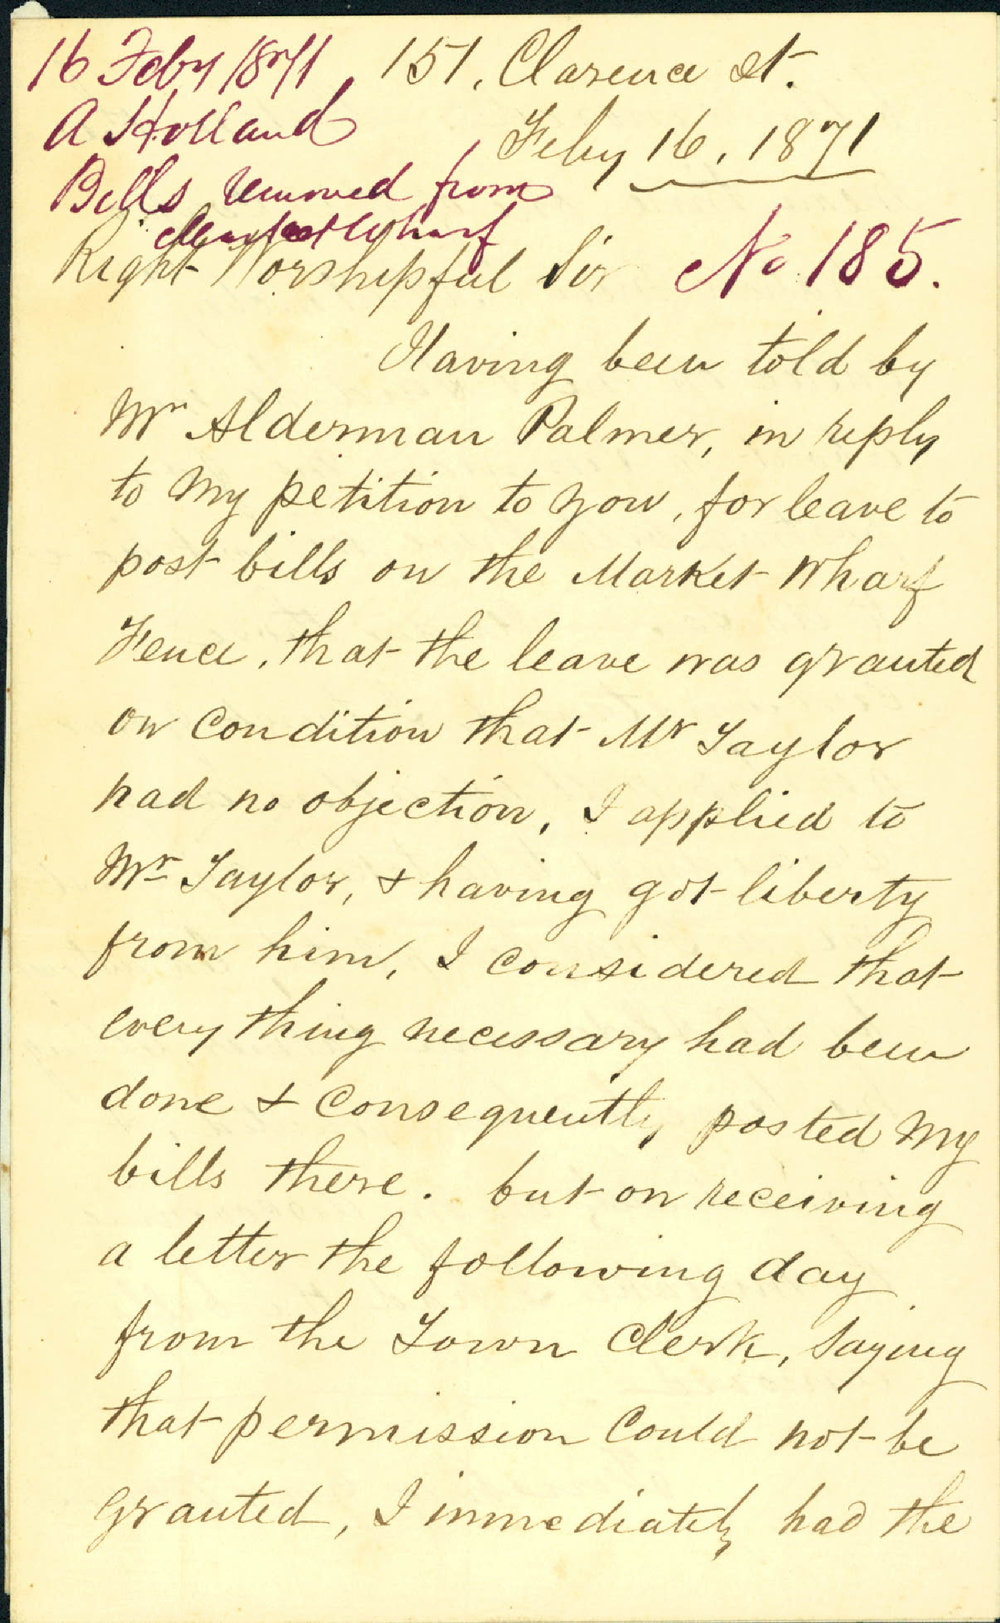 16 Feby 1871
A Holland
Bills removed from
Market Wharf
No 185.
151, Clarence St.
Feby 16, 1871
Right Worshipful Sir
Having been told by
Mr Alderman Palmer, in reply
to my petition to you, for leave to
post bills on the Market Wharf
Fence, that the leave was granted
on condition that Mr Taylor
had no objection, I applied to
Mr Taylor, & having got liberty
from him, I considered that
every thing necessary had been
done & consequently posted my
bills there. but on receiving
a letter the following day
from the Town Clerk, saying
that permission could not be
granted, I immediately had the